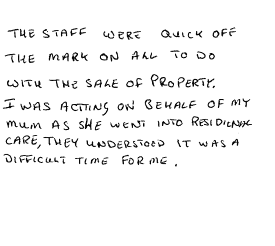 THE STAFF WERE QUICK OFF
THE MARK ON ALL TO DO
WITH THE SALE OF PROPERTY.
I WAS ACTING ON BEHALF OF MY
MUM AS SHE WENT INTO RESIDIENAL
CARE, THEY UNDERSTOOD IT WAS A
DIFFICULT TIME FOR ME.